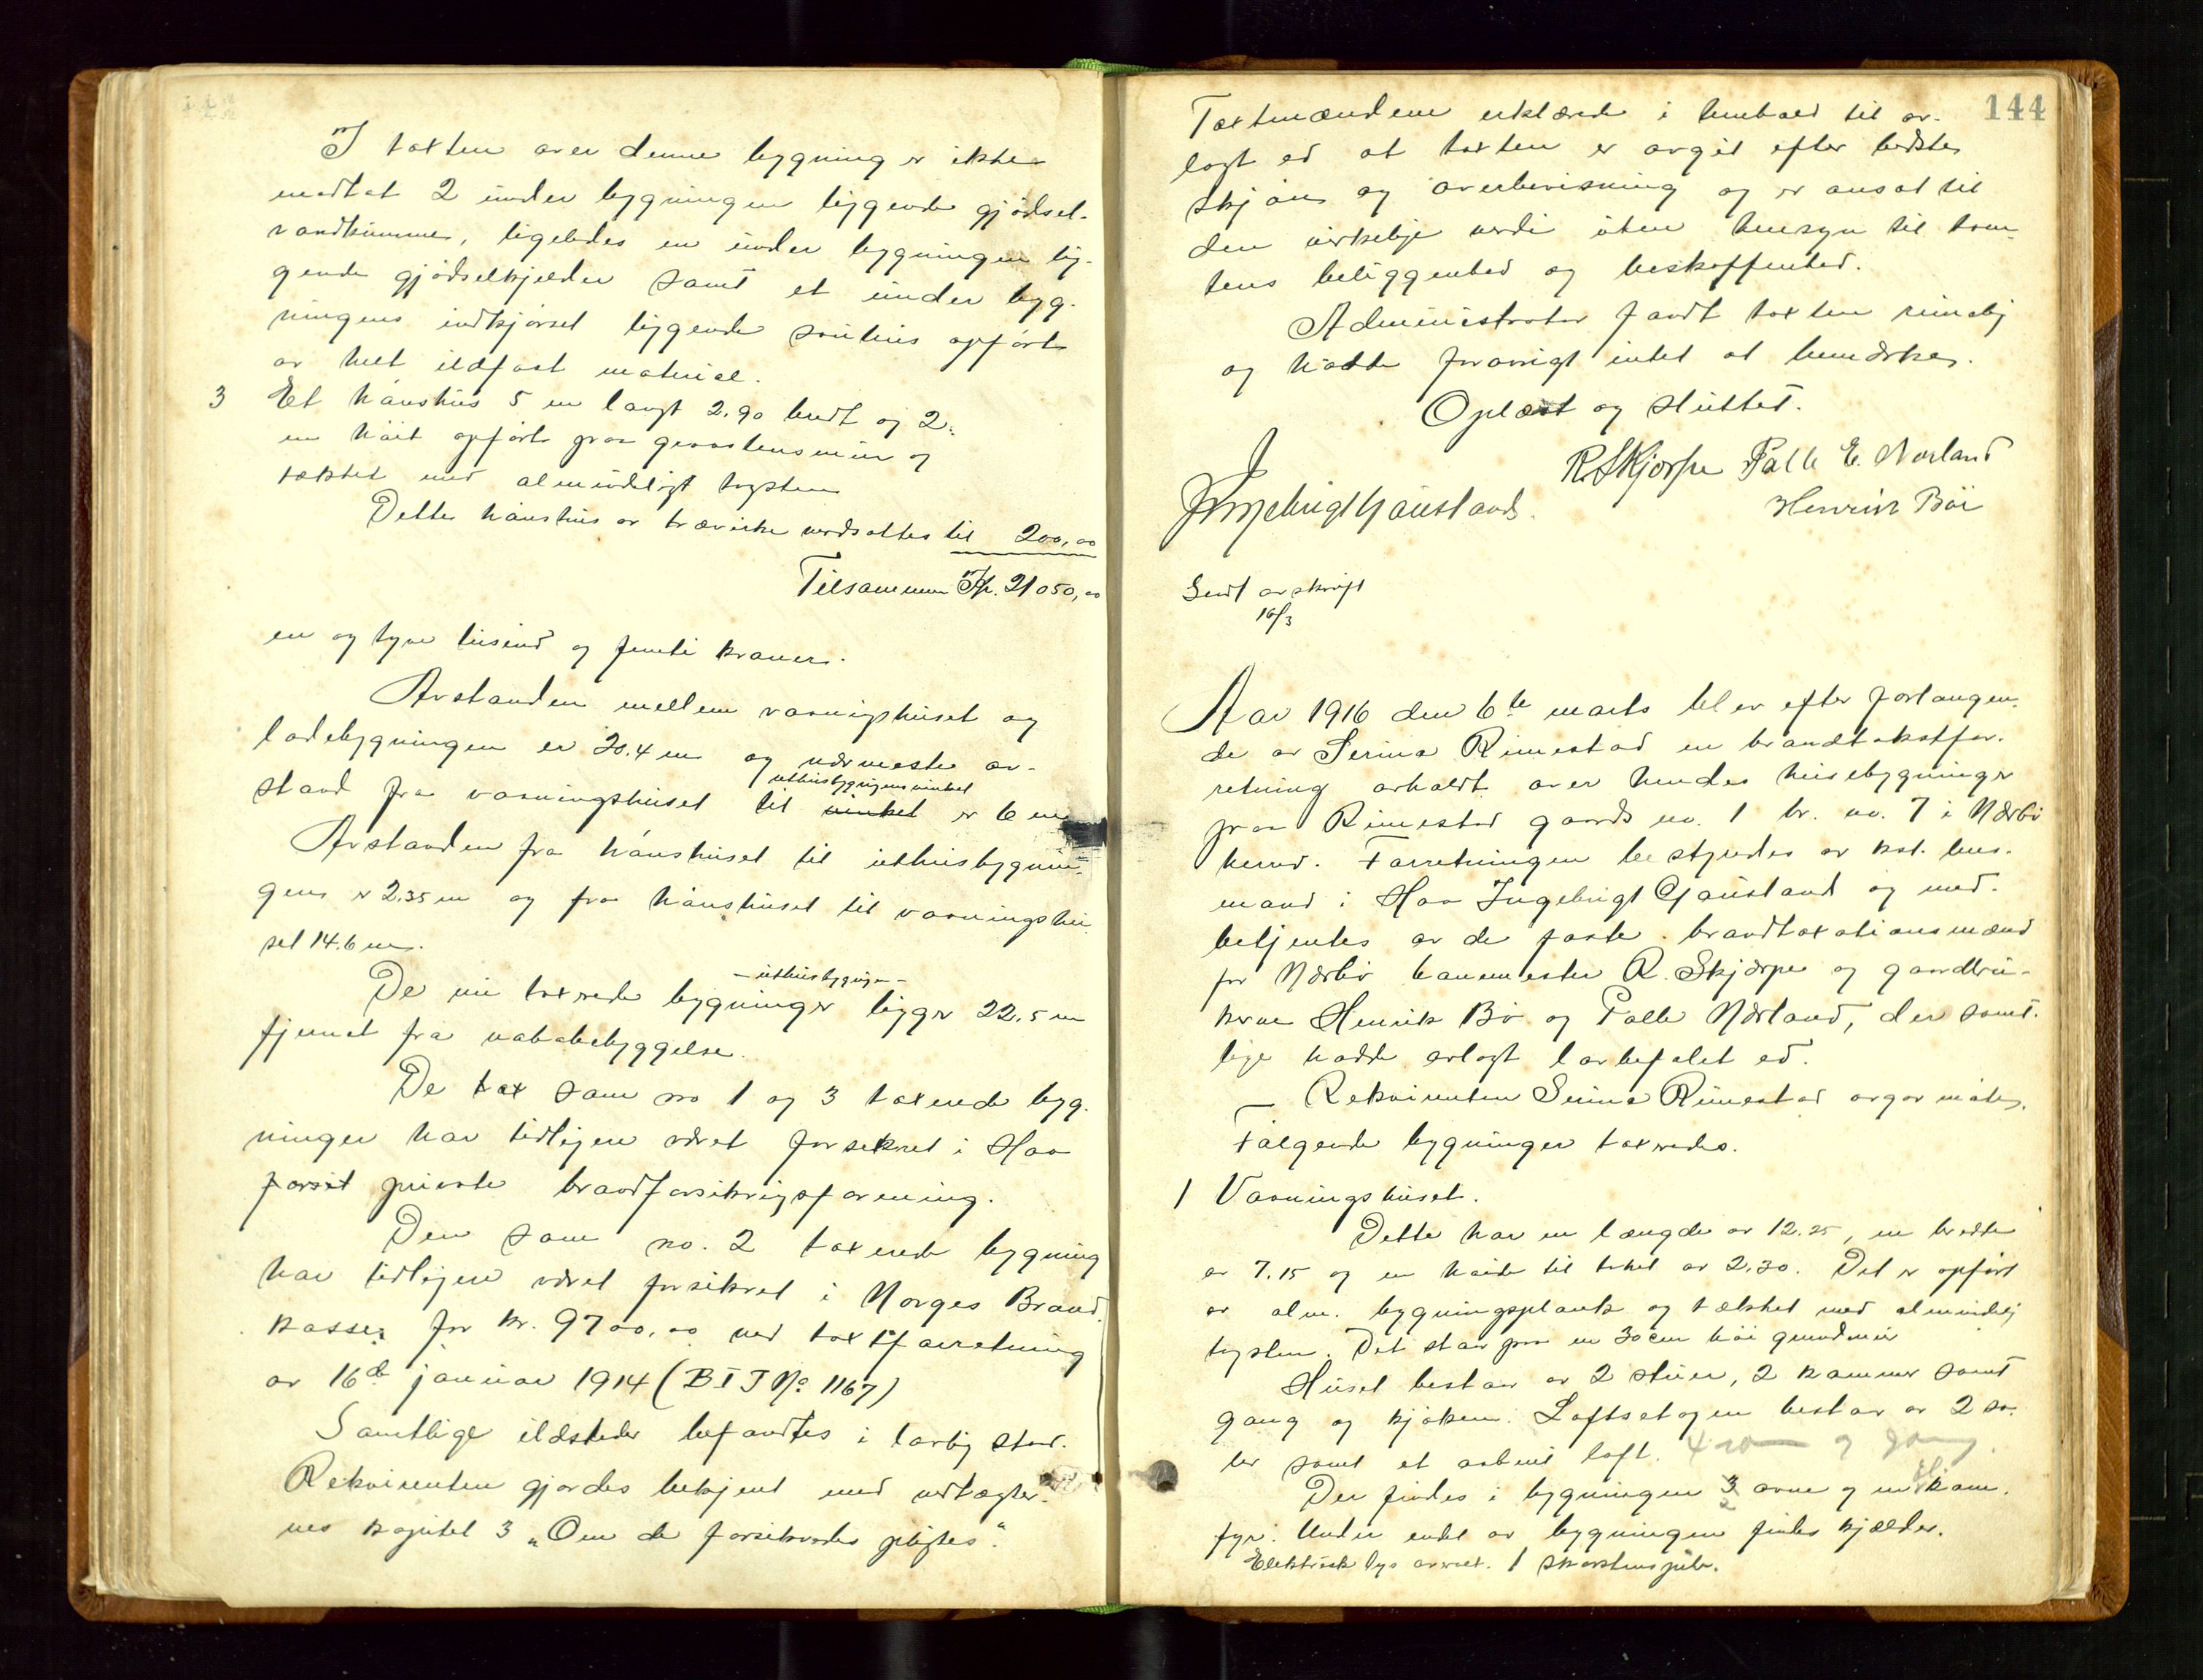 I taxten over denne bygning er ikke
medtat 2 under bygningen liggende gjødsel-
vandkummer, ligeledes en under bygningen lig-
gende gjødselkjelder samt et under byg-
ningens indkjørsel liggende opført
av helt ildfast material.
3 Et hønshus 5 m langt 2.90 bredt og 2.
m höit opført paa graastensmur og
tækket med almindeligt tagsten
Dette hønshus av trævirke verdsattes til 200,00
Tilsammen Kr. 21050,00
en og tyve tusind og femti kroner.
Avstanden mellem vaaningshuset og
ladebygningen er 20.4 m og nærmeste av-
uthusbygningens vinkel
stand fra vaaningshuset til vinkel er 6 m
Avstanden fra hønshuset til uthusbygnin-
gen er 2.35 m og fra hønshuset til vaaningshu-
set 14.6 m.
- uthusbygnigen -
De nu taxerede bygninger ligger 22.5 m
fjernet fra nabobebyggelse.
De tax som no 1 og 3 taxerede byg-
ninger har tidligere været forsikret i Haa
forsit private brandforsikrigsforening.
Den som no. 2 taxerede bygning
har tidligere været forsikret i Norges Brand-
kasse for kr. 9700,00 ved taxtforretning
av 16de januar 1914 (B I J No 1167)
Samtlige ildsteder befandtes i lovlig stand.
Rekvirenten gjordes bekjent med vedtægter-
nes kapitel 3 „Om de forsikredes pligter".
144
Taxtmændene erklærede i henhold til av-
lagt ed at taxten er avgit efter bedste
skjøn og overbevisning og er ansat til
den virkelige verdi uten hensyn til tom-
tens beliggenhed og beskaffenhed.
Administrator fandt taxten rimelig
og hadde forøvrigt intet at bemærke.
Oplæst og sluttet.
R Skjørpe Palle E. Nærland
Ingebrigt Gausland. Henrik Bö
Sendt avskrift
16/3
Aar 1916 den 6te marts blev efter forlangen-
de av Serina Rimestad en brandtakstfor-
retning avholdt over hendes husebygninger
paa Rimestad gaards no. 1 br. no. 7 i Nærbø
herred. Forretningen bestyredes av kst. lens-
mand i Haa Ingebrigt Gausland og med-
betjentes av de faste brandtaxationsmænd
for Nærbø banemester R. Skjærpe og gaardbru-
kerne Henrik Bø og Palle Nærland, der samt-
lige hadde avlagt lovbefalet ed.
Rekvirenten Serina Rimestad avgav møte.
Følgende bygninger taxeredes.
1 Vaaningshuset.
Dette har en længde av 12.25, en bredde
av 7.15 og en høide til taket av 2,30. Det er opført
av alm. bygningsplank og tækket med almindelig
tagsten. Det staar paa en 30 cm höi grundmur
Huset bestaar av 2 stuer, 2 kammer samt
gang og kjøken. Loftsetagen bestaar av 2 sa-
ler samt et aapent loft. og gang
Der findes i bygningen 3 ovne og en kom-
2
fyr. Under endel av bygningen findes kjælder.
Elektrisk lys overalt. 1 skorstenspibe.